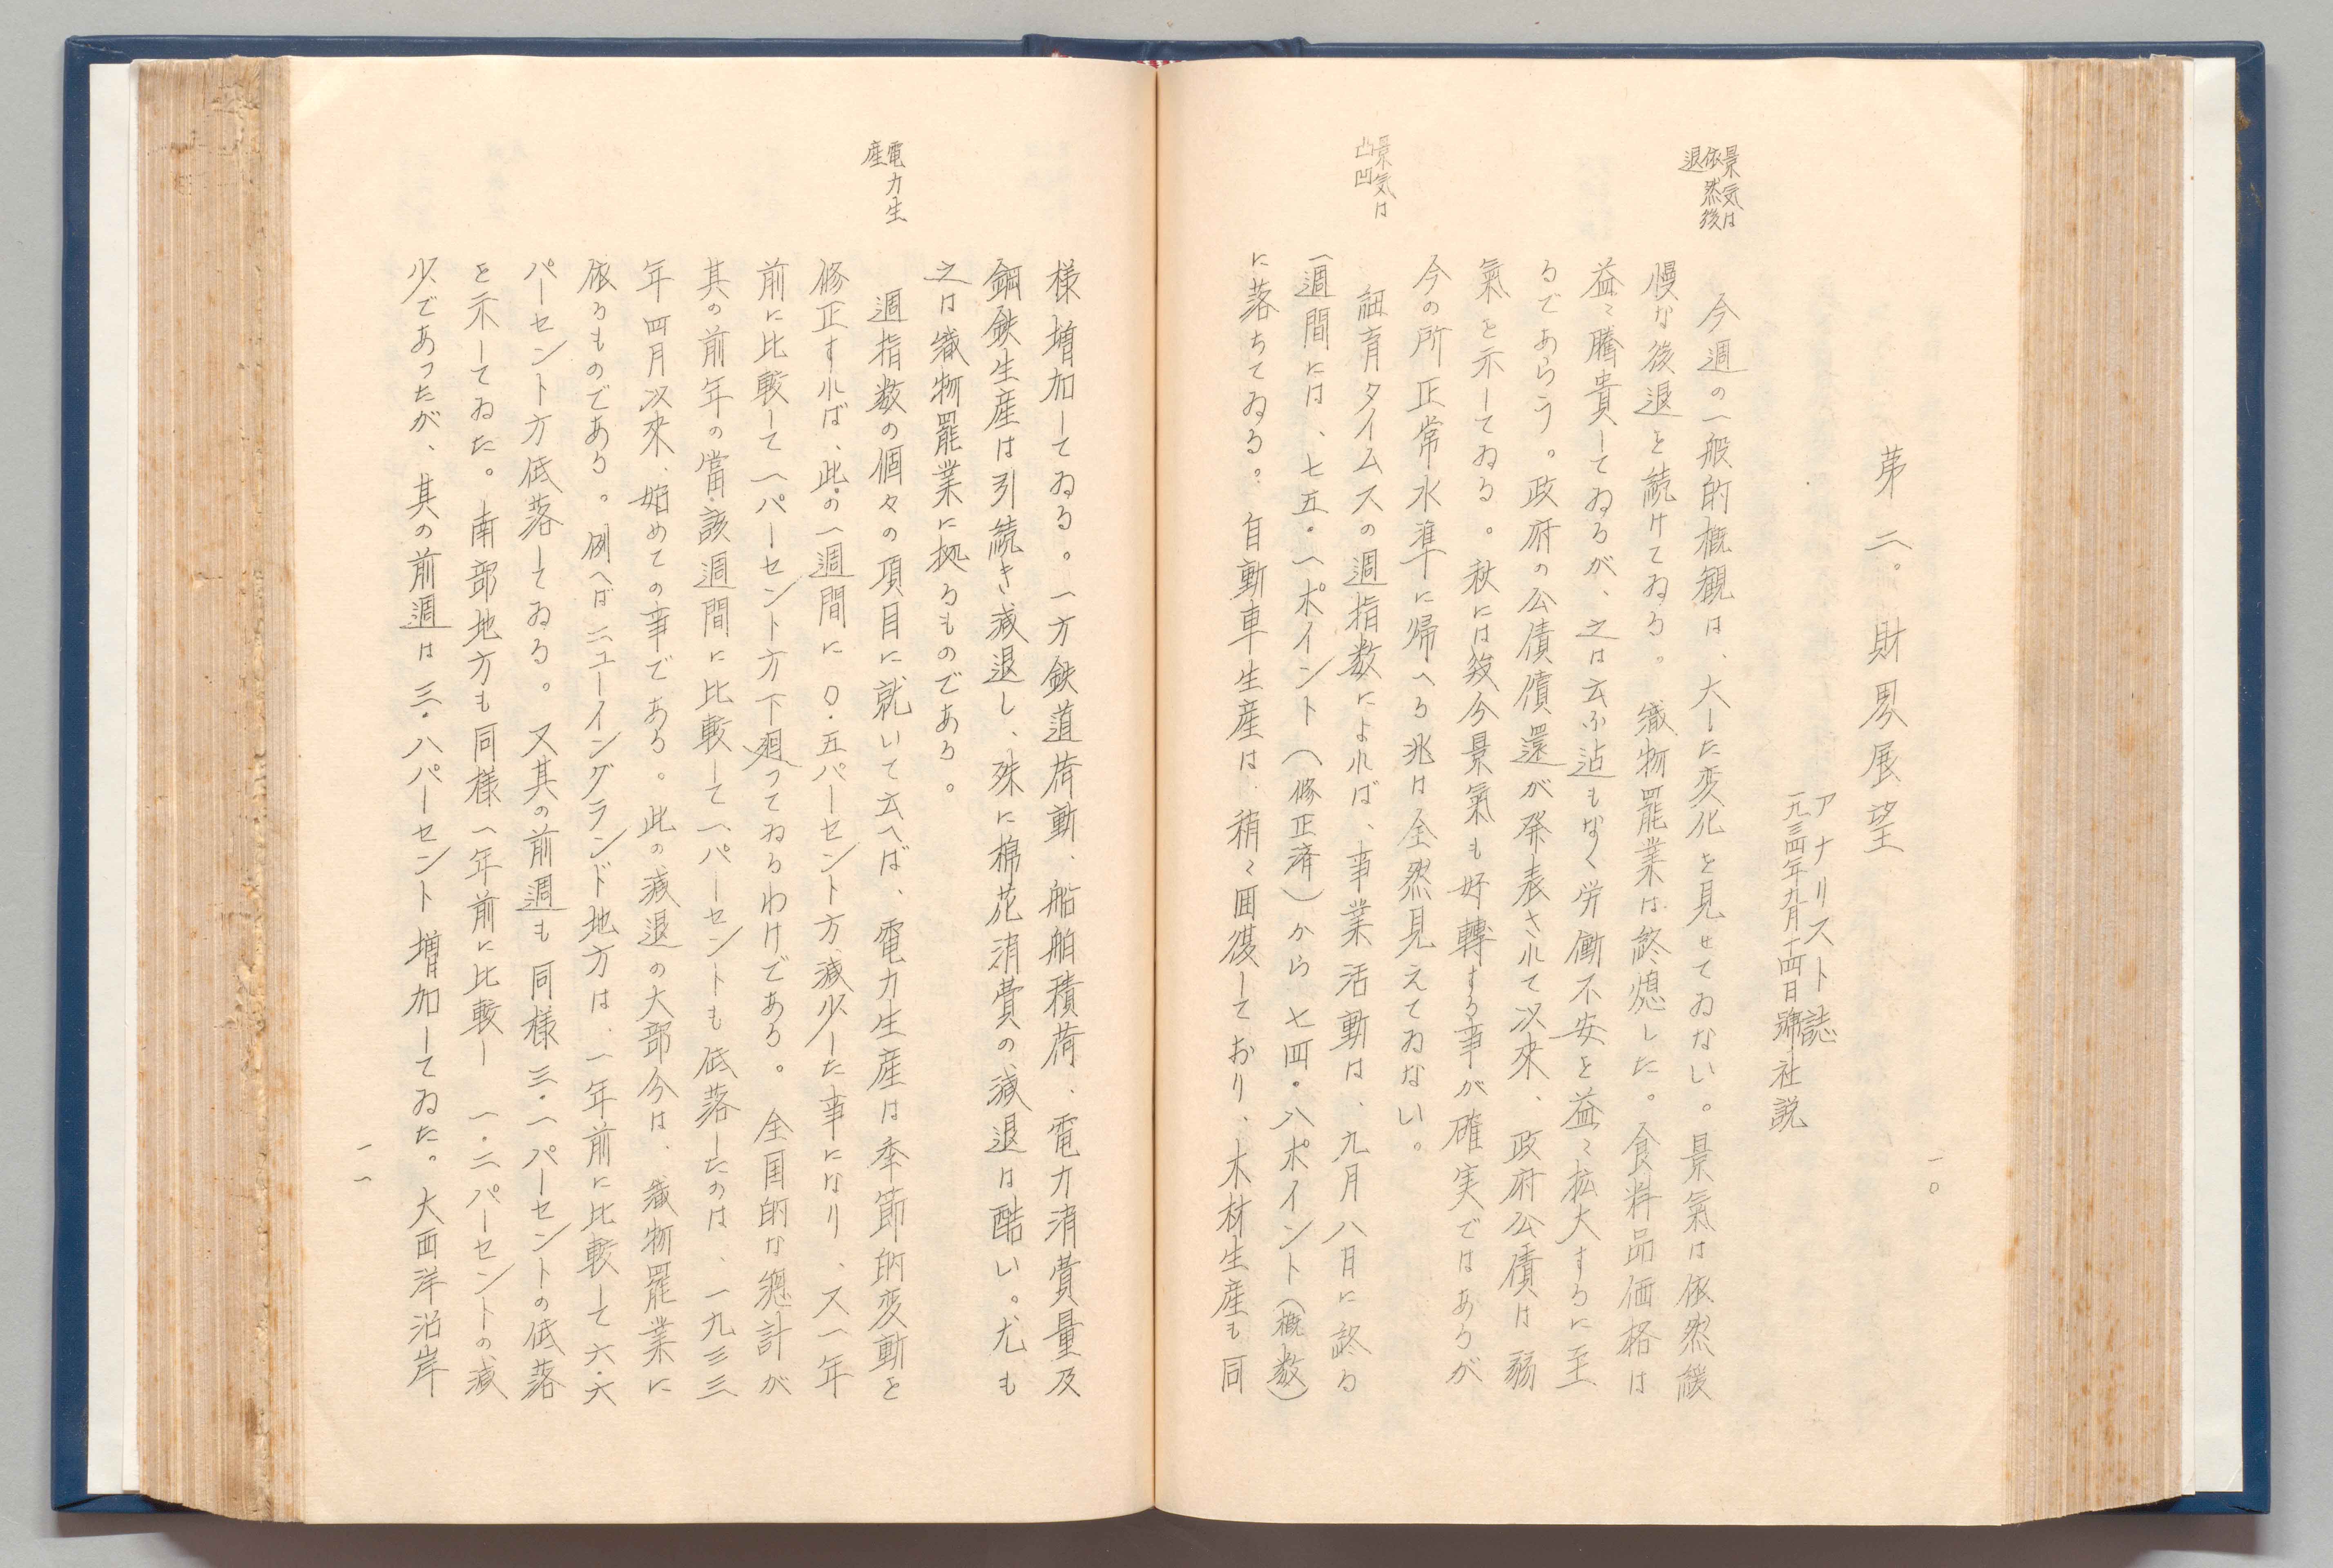 第二。財界展望
アナリスト誌
一九三四年九月十四日號社説
景気は
依然後
退
今週の一般的概観は、大した変化を見せてゐない。景氣は依然緩
慢な後退を続けてゐる。織物罷業は終熄した。食料品価格は
益々騰貴してゐるが、之は云ふ迠もなく労働不安を益々拡大するに至
るであらう。政府の公債償還が発表されて以來、政府公債は弱
氣を示してゐる。秋には幾分景氣も好轉する事が確実ではあるが
今の所正常水準に帰へる兆は全然見えてゐない。
景気は
凸凹
紐育タイムスの週指数によれば、事業活動は、九月八日に終る
一週間には、七五・一ポイント（修正済）から七四・八ポイント（概数）
に落ちてゐる。自動車生産は、稍々囬復しており、木材生産も同
一〇
様増加してゐる。一方鉄道荷動、船舶積荷、電力消費量及
鋼鉄生産は引続き減退し、殊に棉花消費の減退は酷い。尤も
之は織物罷業に拠るものである。
電力生
産
週指数の個々の項目に就いて云へば、電力生産は季節的変動を
修正すれば、此の一週間に〇・五パーセント方減少した事になり、又一年
前に比較して一パーセント方下廻ってゐるわけである。全国的な總計が
其の前年の當該週間に比較して一パーセントも低落したのは、一九三三
年四月以來、始めての事である。此の減退の大部分は、織物罷業に
依るものである。例へばニューイングランド地方は、一年前に比較して六・六
パーセント方低落してゐる。又其の前週も同様三・一パーセントの低落
を示してゐた。南部地方も同様一年前に比較し一・二パーセントの減
少であったが、其の前週は三・八パーセント増加してゐた。大西洋沿岸
一一